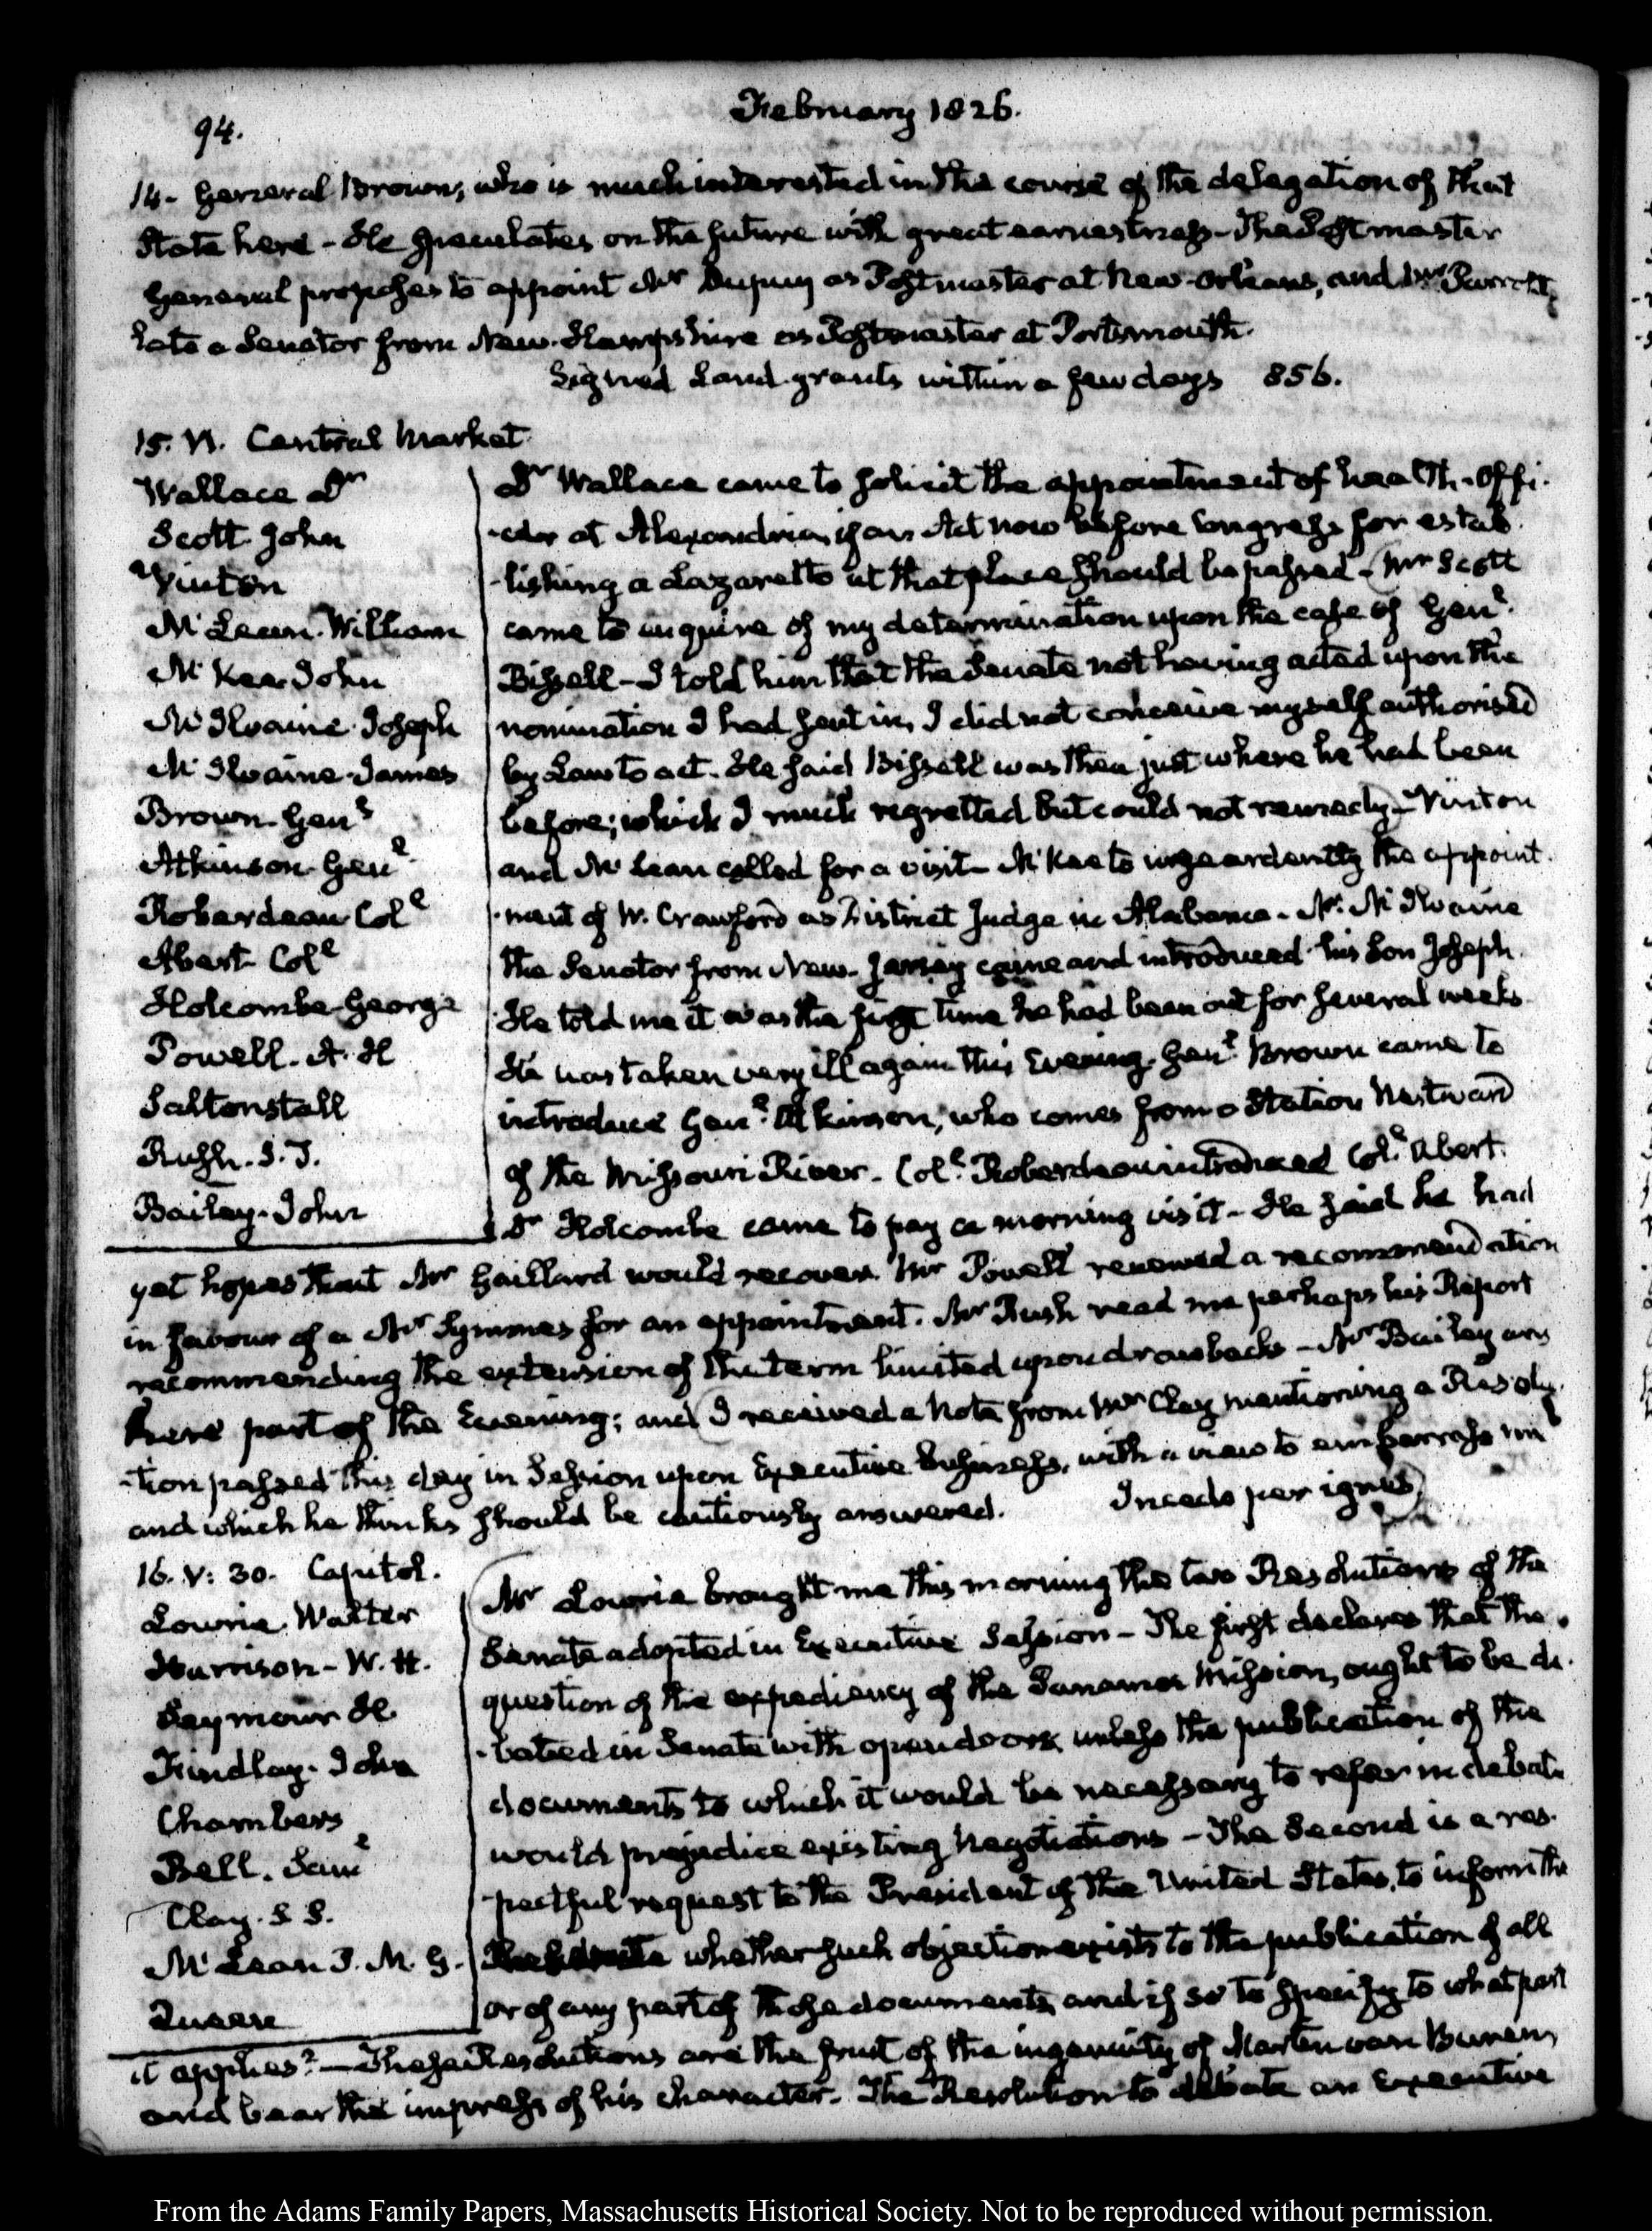 94.
February 1826.
14- General Brown, who is much interested in the course of the delegation of that
State here - He speculates on the future with great earnestness - The Postmaster
General proposes to appoint Mr Dupuy as Postmaster at New-Orleans, and Mr Parrott,
late a Senator from New-Hampshire as Postmaster at Portsmouth.
Signed Land grants within a few days 856.
15. VI. Central Market
Wallace Dr
Scott John
Vinton
McLean. William
McKee John
McIlvaine Joseph
McIlvaine James
Brown Genl
Atkinson Genl
Roberdeau Coll
Abert Coll
Holcombe George
Powell. A. H
Saltonstall
Rush. S. T.
Bailey. John
Dr Wallace came to solicit the appointment of health-offi-
-cer at Alexandria, if an Act now before Congress for estab-
-lishing a Lazaretto at that place should be passed - Mr Scott
came to enquire of my determination upon the case of Genl
Bissell - I told him that the Senate not having acted upon the
nomination I had sent in, I did not conceive myself authorised
by Law to act. He said Bissell was then just where he had been
before; which I much regretted but could not remedy - Vinton
and McLean called for a visit - McKee to urge ardently the appoint-
-ment of W. Crawford as District Judge in Alabama - Mr McIlvaine
the Senator from New-Jersey came and introduced his Son Joseph.
He told me it was the first time he had been out for several weeks.
He was taken very ill again this Evening. Genl Brown came to
introduce Genl Atkinson, who comes from a Station Westward
of the Missouri River. Coll Roberdeau introduced Coll Abert.
Dr Holcombe came to pay a morning visit - He said he had
yet hopes that Mr Gaillard would recover. Mr Powell renewed a recommendation
in favour of a Mr Symmes for an appointment. Mr Rush read me perhaps his Report
recommending the extension of the term limited upon drawbacks - Mr Bailey was
here part of the Evening; and I received a Note from Mr Clay mentioning a Resolu-
-tion passed this day in Session upon Executive business, with a view to embarrass me
and which he thinks should be cautiously answered. Incedo per ignes
16. V: 30. Capitol.
Lowrie Walter
Harrison - W. H.
Seymour H.
Findlay. John
Chambers
Bell. Saml
Clay. S S.
McLean P. M. G.
Mr Lowrie brought me this morning the two Resolutions of the
Senate adopted in Executive Session - The first declares that the
question of the expediency of the Panama Mission, ought to be de-
-bated in Senate with open doors, unless the publication of the
documents to which it would be necessary to refer in debate
would prejudice existing Negotiations - The Second is a res-
-pectful request to the President of the United States, to inform the
whether such objection exists to the publication of all
or of any part of those documents, and if so to specify to what part
it applies? - These Resolutions are the fruit of the ingenuity of Martin van Buren,
and bear the impress of his character. The Resolution to debate an Executive
From the Adams Family Papers, Massachusetts Historical Society. Not to be reproduced without permission.